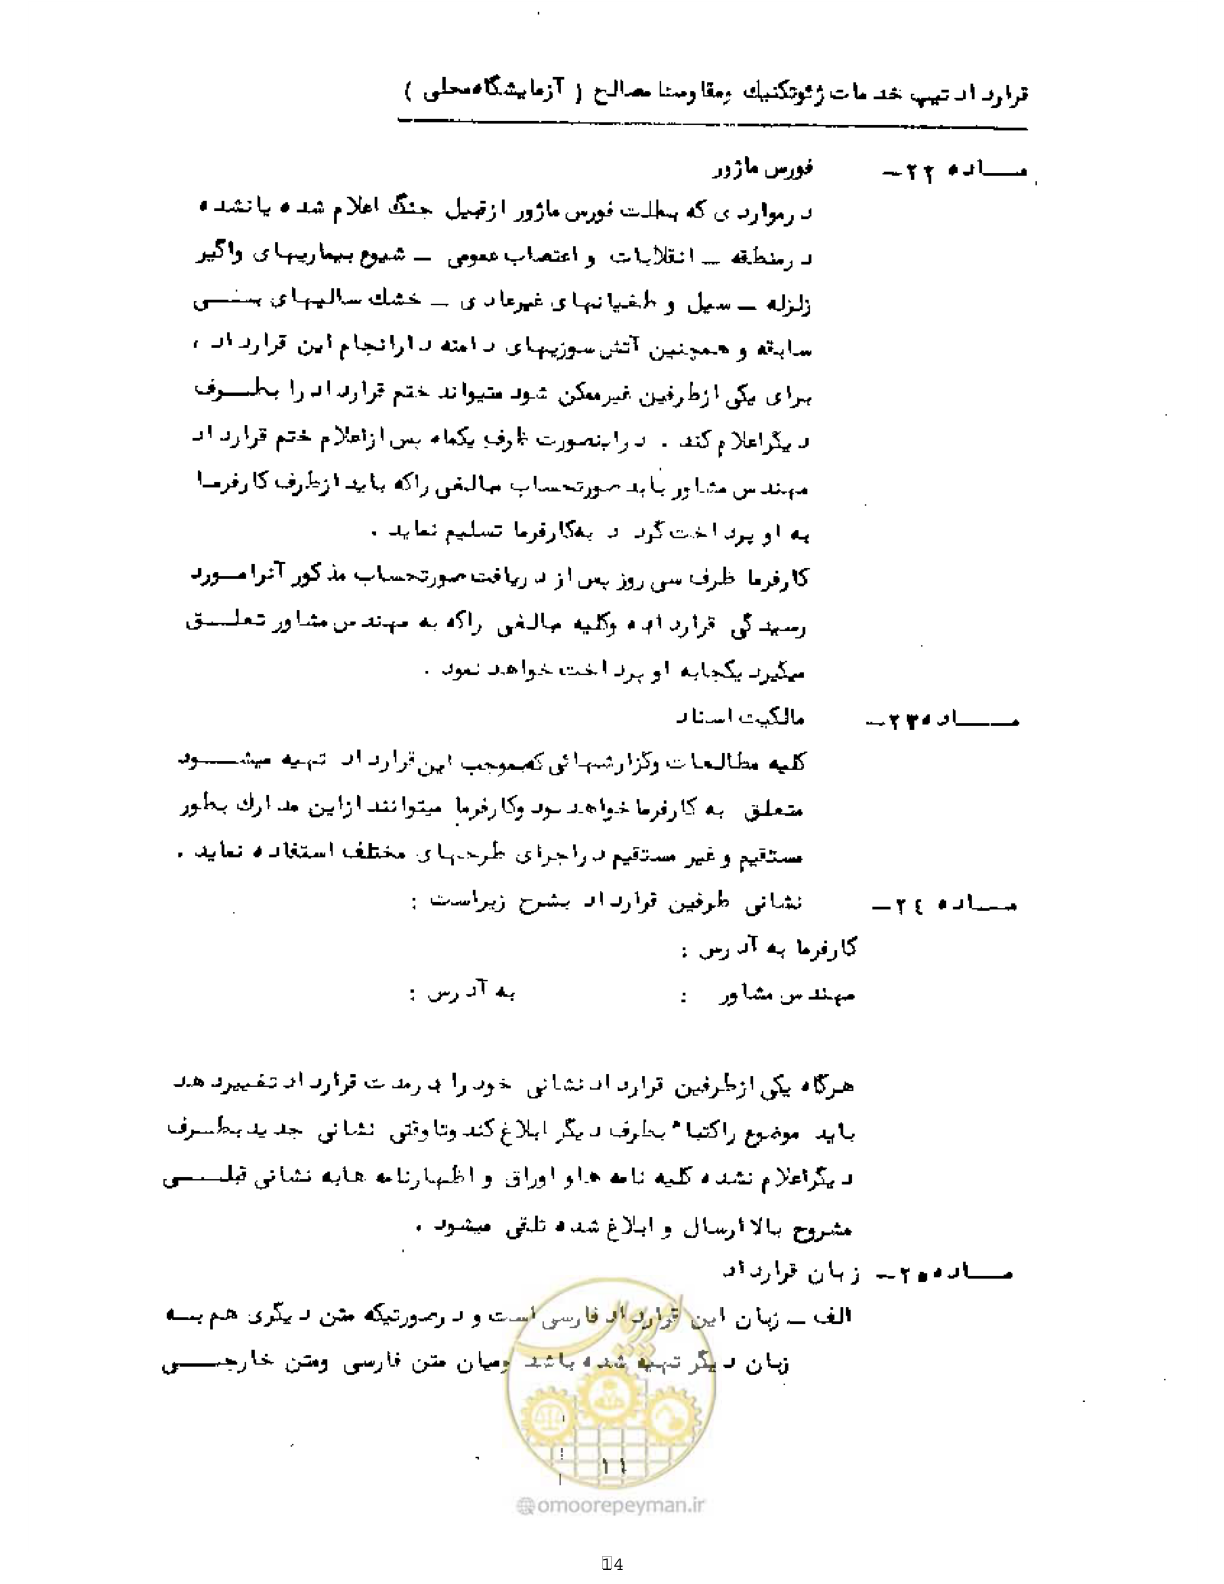 قرارداد تیپ خدمات ژئوتکنیک ومقاومت مصالح ( آزمایشگاه محلی )
مــاده ۲۲- فورس ماژور
درمواردی که بعلت فورس ماژور ازقبیل جنگ اعلام شده یانشده
درمنطقه - انقلابات و اعتصاب عمومی - شیوع بیماریهای واگیر
زلزله - سیل و طغیانهای غیرعادی - خشک سالیهای بـــی
سابقه و همچنین آتش سوزیهای دامنه دارانجام این قرارداد ،
برای یکی ازطرفین غیرممکن شود میتواند ختم قرارداد را بطــرف
دیگراعلام کند . دراینصورت ظرف یکماه پس ازاعلام ختم قرارداد
مهندس مشاور باید صورتحساب مبالغی راکه باید ازطرف کارفرمـا
به او پرداخت گردد به کارفرما تسلیم نماید .
کارفرما ظرف سی روز پس از دریافت صورتحساب مذکور آنرامــورد
رسیدگی قرارداده وکلیه مبالغی راکه به مهندس مشاور تعلــق
میگیرد یکجابه او پرداخت خواهد نمود .
مـــاده ۲۳- مالکیت اسناد
کلیه مطالعات وگزارشهائی که بموجب این قرارداد تهیه میشـــود
متعلق به کارفرما خواهد بود وکارفرما میتوانند ازاین مدارک بطور
مستقیم و غیر مستقیم دراجرای طرحهای مختلف استفاده نماید .
مــاده ۲٤- نشانی طرفین قرارداد بشرح زیراست :
کارفرما به آدرس :
مهندس مشاور : به آدرس :
هرگاه یکی ازطرفین قرارداد نشانی خود را درمدت قرارداد تغییردهد
باید موضوع راکتباً بطرف دیگر ابلاغ کند وتاوقتی نشانی جدید بطــرف
دیگراعلام نشده کلیه نامه هاو اوراق و اظهارنامه هابه نشانی قبلـــی
مشروح بالا ارسال و ابلاغ شده تلقی میشود .
مـــاده ۲۵- زبان قرارداد
الف - زبان این قرارداد فارسی است و درصورتیکه متن دیگری هم بــه
زبان دیگر تهیه شده باشد ومیان متن فارسی ومتن خارجـــی
امور پیمان
۱۱
@omoorepeyman.ir
14